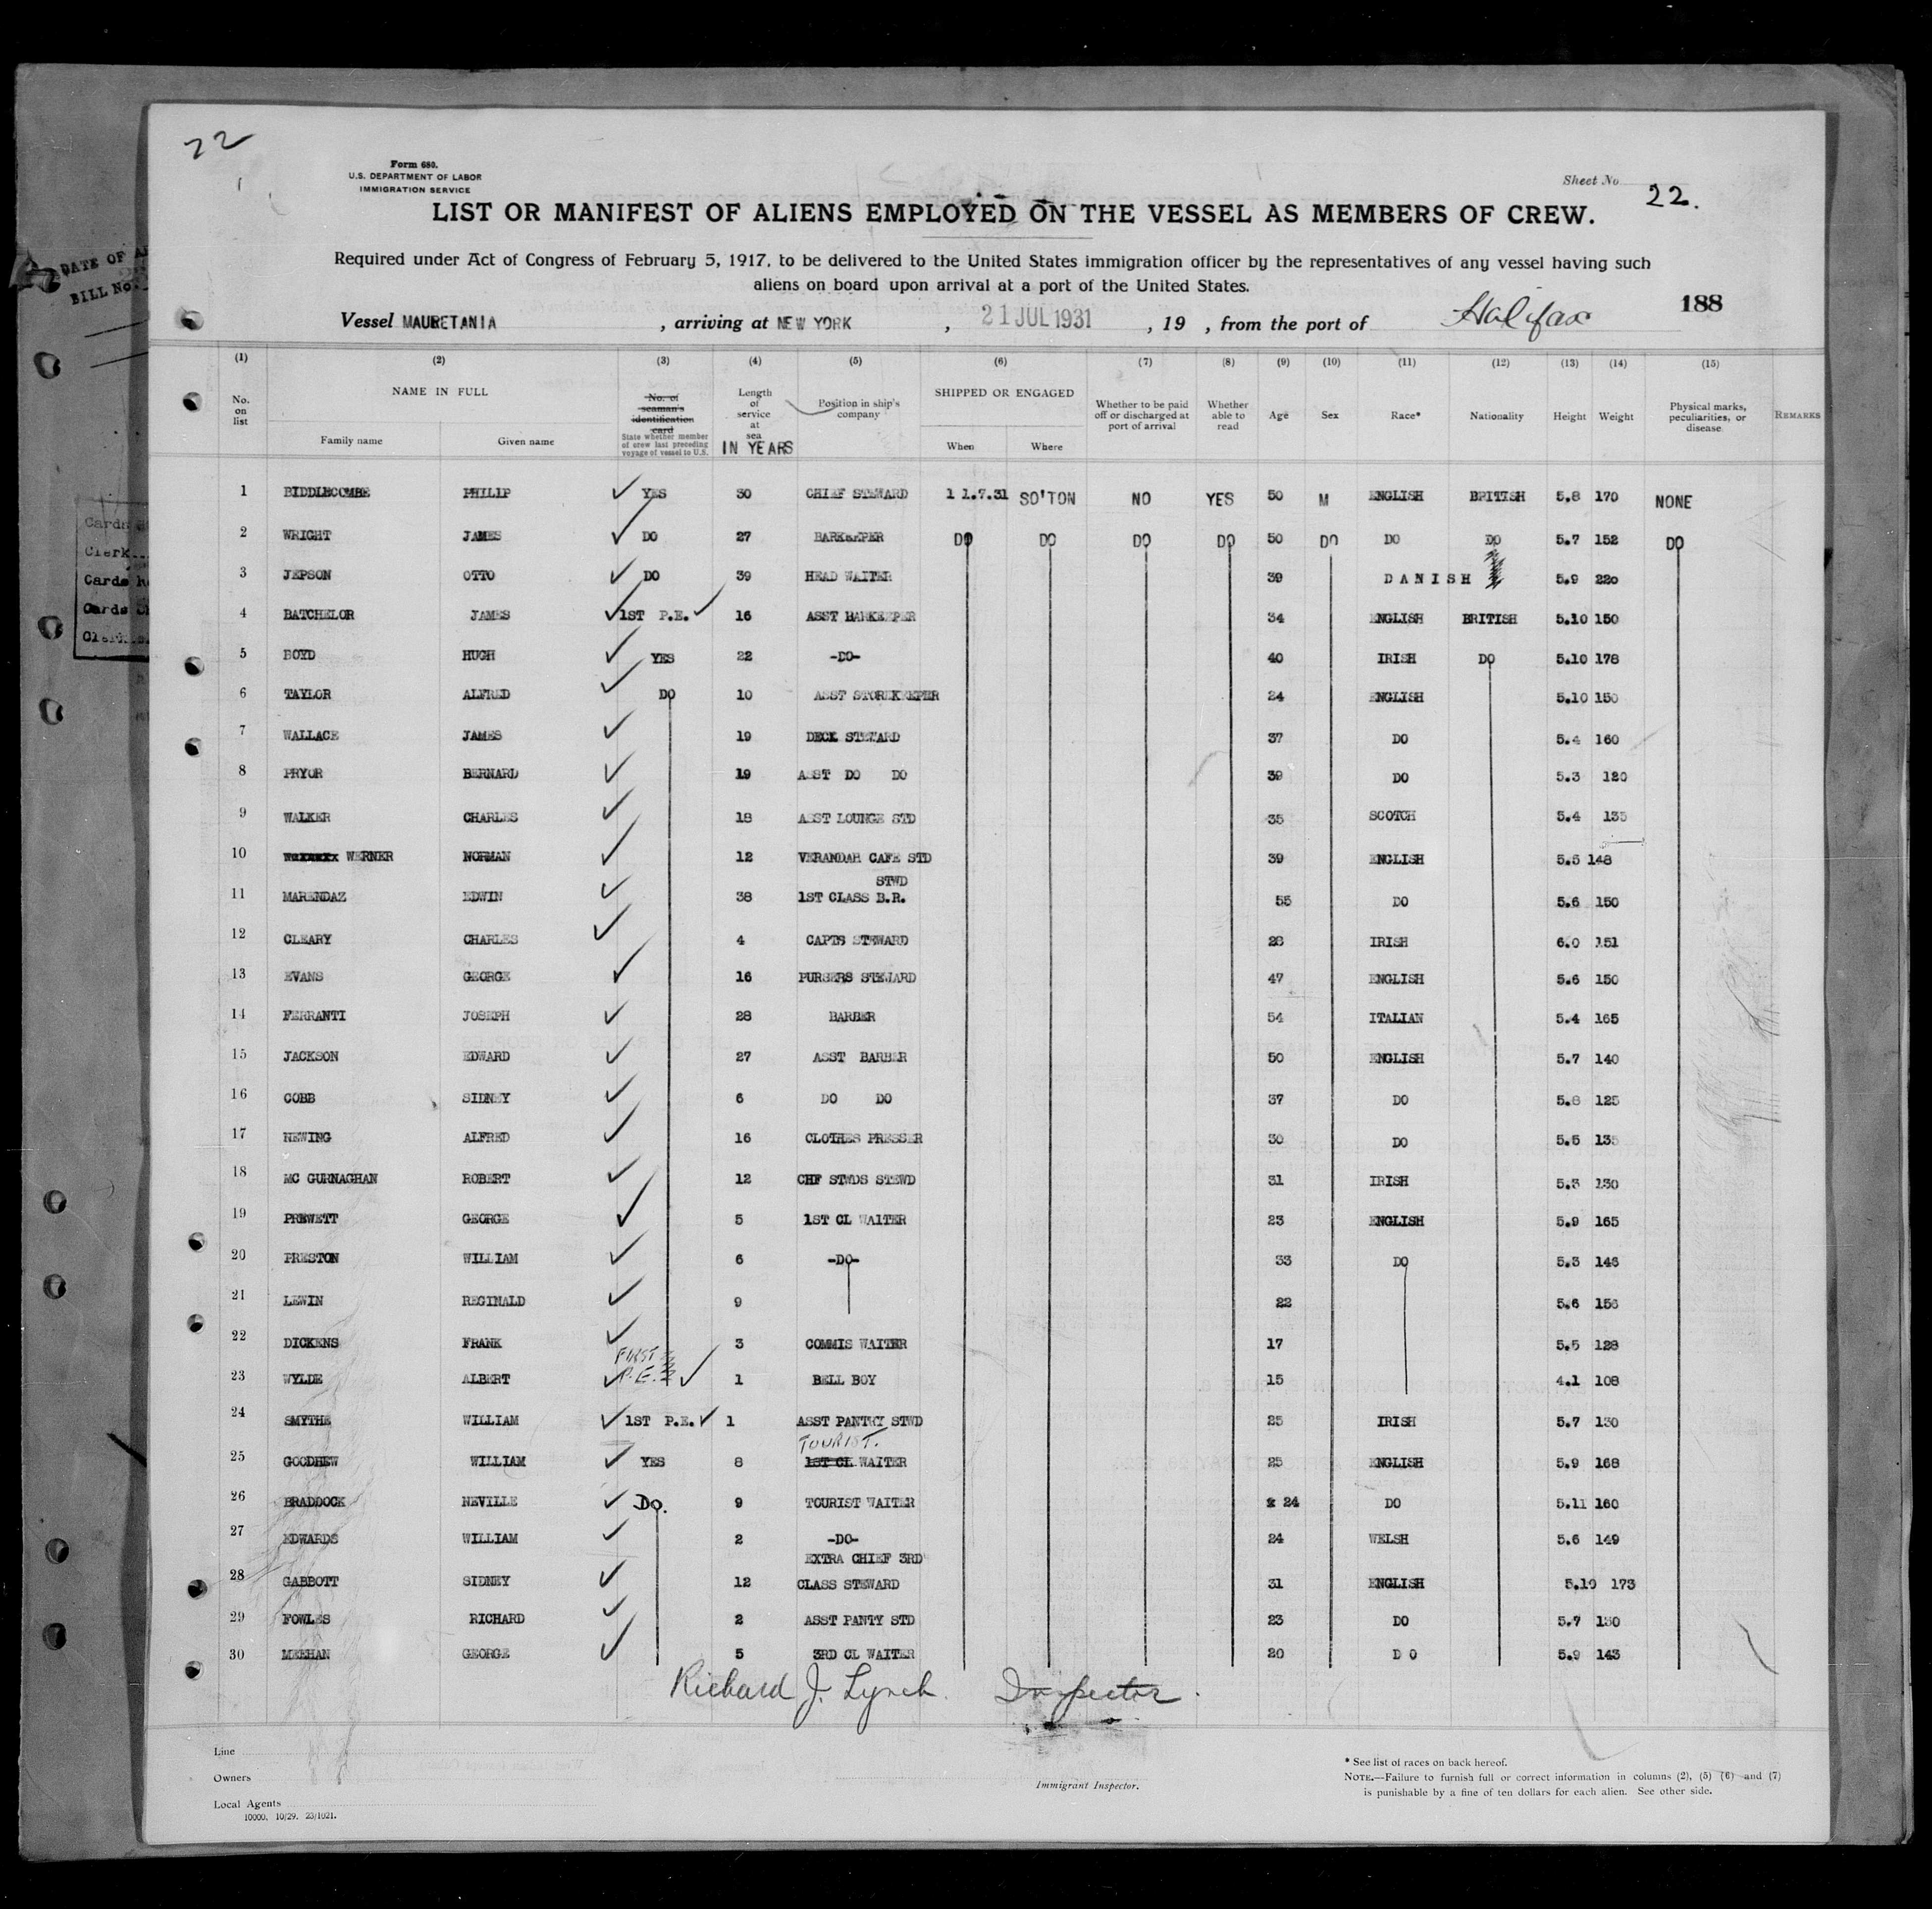 22
Form 680.
U.S. DEPARTMENT OF LABOR
IMMIGRATION SERVICE
Sheet No 22.
LIST OR MANIFEST OF ALIENS EMPLOYED ON THE VESSEL AS MEMBERS OF CREW.
Required under Act of Congress of February 5, 1917, to be delivered to the United States immigration officer by the representatives of any vessel having such
aliens on board upon arrival at a port of the United States.
DATE OF
BILL No.
Vessel MAURETANIA, arriving at NEW YORK, 21 JUL 1931, 19 , from the port of Halifax 188
(1) (2) (3) (4) (5) (6) (7) (8) (9) (10) (11) (12) (13) (14) (15)
No. on list
NAME IN FULL
Family name Given name
No. of seaman's identification card
State whether member of crew last preceding voyage of vessel to U.S.
Length of service at sea IN YEARS
Position in ship's company
SHIPPED OR ENGAGED
When Where
Whether to be paid off or discharged at port of arrival
Whether able to read
Age Sex Race* Nationality Height Weight
Physical marks, peculiarities, or disease
REMARKS
1 BIDDLECOMBE PHILIP ✓ YES 30 CHIEF STEWARD 1 1.7.31 SO'TON NO YES 50 M ENGLISH BRITISH 5.8 170 NONE
2 WRIGHT JAMES ✓ DO 27 BARKEEPER DO DO DO DO 50 DO DO DO 5.7 152 DO
3 JEPSON OTTO ✓ DO 39 HEAD WAITER 39 DANISH 5.9 220
4 BATCHELOR JAMES ✓ 1ST P.E. ✓ 16 ASST BARKEEPER 34 ENGLISH BRITISH 5.10 150
5 BOYD HUGH ✓ YES 22 -DO- 40 IRISH DO 5.10 178
6 TAYLOR ALFRED ✓ DO 10 ASST STOREKEEPER 24 ENGLISH 5.10 150
7 WALLACE JAMES ✓ 19 DECK STEWARD 37 DO 5.4 160
8 PRYOR BERNARD ✓ 19 ASST DO DO 39 DO 5.3 120
9 WALKER CHARLES ✓ 18 ASST LOUNGE STD 35 SCOTCH 5.4 135
10 WERNER NORMAN ✓ 12 VERANDAH CAFE STD 39 ENGLISH 5.5 148
STWD
11 MARENDAZ EDWIN ✓ 38 1ST CLASS B.R. 55 DO 5.6 150
12 CLEARY CHARLES ✓ 4 CAPTS STEWARD IRISH 6.0 151
13 EVANS GEORGE ✓ 16 PURSERS STEWARD 47 ENGLISH 5.6 150
14 FERRANTI JOSEPH ✓ 28 BARBER 54 ITALIAN 5.4 165
15 JACKSON EDWARD ✓ 27 ASST BARBER 50 ENGLISH 5.7 140
16 COBB SIDNEY ✓ 6 DO DO 37 DO 5.8 125
17 NEWING ALFRED ✓ 16 CLOTHES PRESSER 30 DO 5.5 135
18 MC GURNAGHAN ROBERT ✓ 12 CHF STWDS STEWD 31 IRISH 5.3 130
19 PREWETT GEORGE ✓ 5 1ST CL WAITER 23 ENGLISH 5.9 165
20 PRESTON WILLIAM ✓ 6 -DO- 33 DO 5.3 146
21 LEWIN REGINALD ✓ 9 22 5.6 156
22 DICKENS FRANK ✓ 3 COMMIS WAITER 17 5.5 128
FIRST
23 WYLDE ALBERT ✓ P.E. ✓ 1 BELL BOY 15 4.1 108
24 SMYTHE WILLIAM ✓ 1ST P.E. ✓ 1 ASST PANTRY STWD 25 IRISH 5.7 130
TOURIST.
25 GOODHEW WILLIAM ✓ YES 8 1ST CL WAITER 25 ENGLISH 5.9 168
26 BRADDOCK NEVILLE ✓ DO. 9 TOURIST WAITER 24 DO 5.11 160
27 EDWARDS WILLIAM ✓ 2 -DO- 24 WELSH 5.6 149
EXTRA CHIEF 3RD
28 GABBOTT SIDNEY ✓ 12 CLASS STEWARD 31 ENGLISH 5.10 173
29 FOWLES RICHARD ✓ 2 ASST PANTY STD 23 DO 5.7 130
30 MEEHAN GEORGE ✓ 5 3RD CL WAITER 20 DO 5.9 143
Richard J. Lynch. Inspector.
Line
Owners
Local Agents
10000. 10/29. 23/1021.
Immigrant Inspector.
* See list of races on back hereof.
NOTE.—Failure to furnish full or correct information in columns (2), (5) (6) and (7)
is punishable by a fine of ten dollars for each alien. See other side.